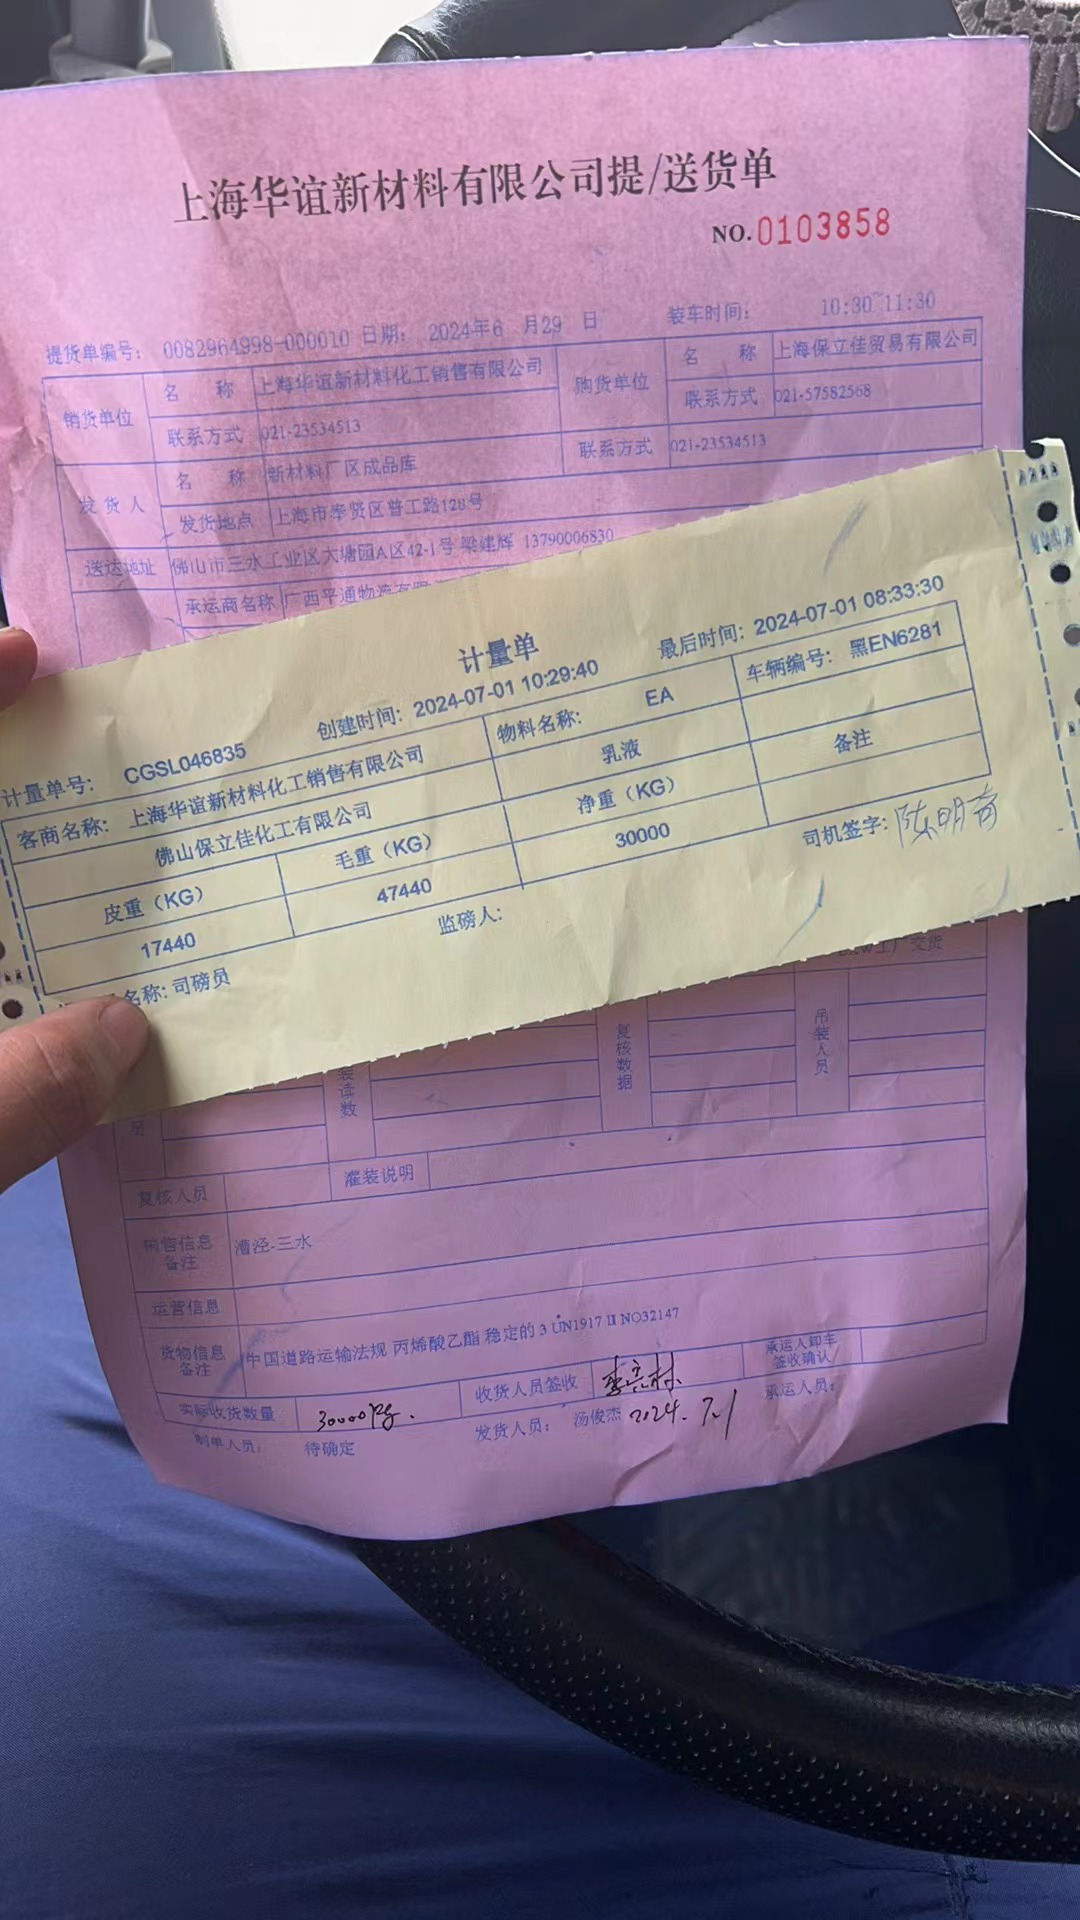 上海华谊新材料有限公司提/送货单
NO.0103858
提货单编号: 0082964998-000010 日期: 2024年6 月29 日 装车时间: 10:30~11:30
销货单位 名 称 上海华谊新材料化工销售有限公司 购货单位 名 称 上海保立佳贸易有限公司
联系方式 021-23534513 联系方式 021-57582568
发货人 名 称 新材料厂区成品库 联系方式 021-23534513
发货地点 上海市奉贤区普工路128号
送达地址 佛山市三水工业区大塘园A区42-1号 梁建辉 13790006830
承运商名称 广西平通物流有限
计量单
计量单号: CGSL046835 创建时间: 2024-07-01 10:29:40 最后时间: 2024-07-01 08:33:30
客商名称: 上海华谊新材料化工销售有限公司 物料名称: EA 车辆编号: 黑EN6281
佛山保立佳化工有限公司 乳液
皮重（KG） 毛重（KG） 净重（KG） 备注
17440 47440 30000
名称: 司磅员 监磅人: 司机签字:
工厂交货
员 装读数 复核数据 吊装人员
复核人员 灌装说明
销售信息备注 漕泾-三水
运营信息
货物信息备注 中国道路运输法规 丙烯酸乙酯 稳定的 3 UN1917 II NO32147
实际收货数量 30000kg. 收货人员签收 承运人卸车签收确认
制单人员: 待确定 发货人员: 汤俊杰 2024.7.1 承运人员: